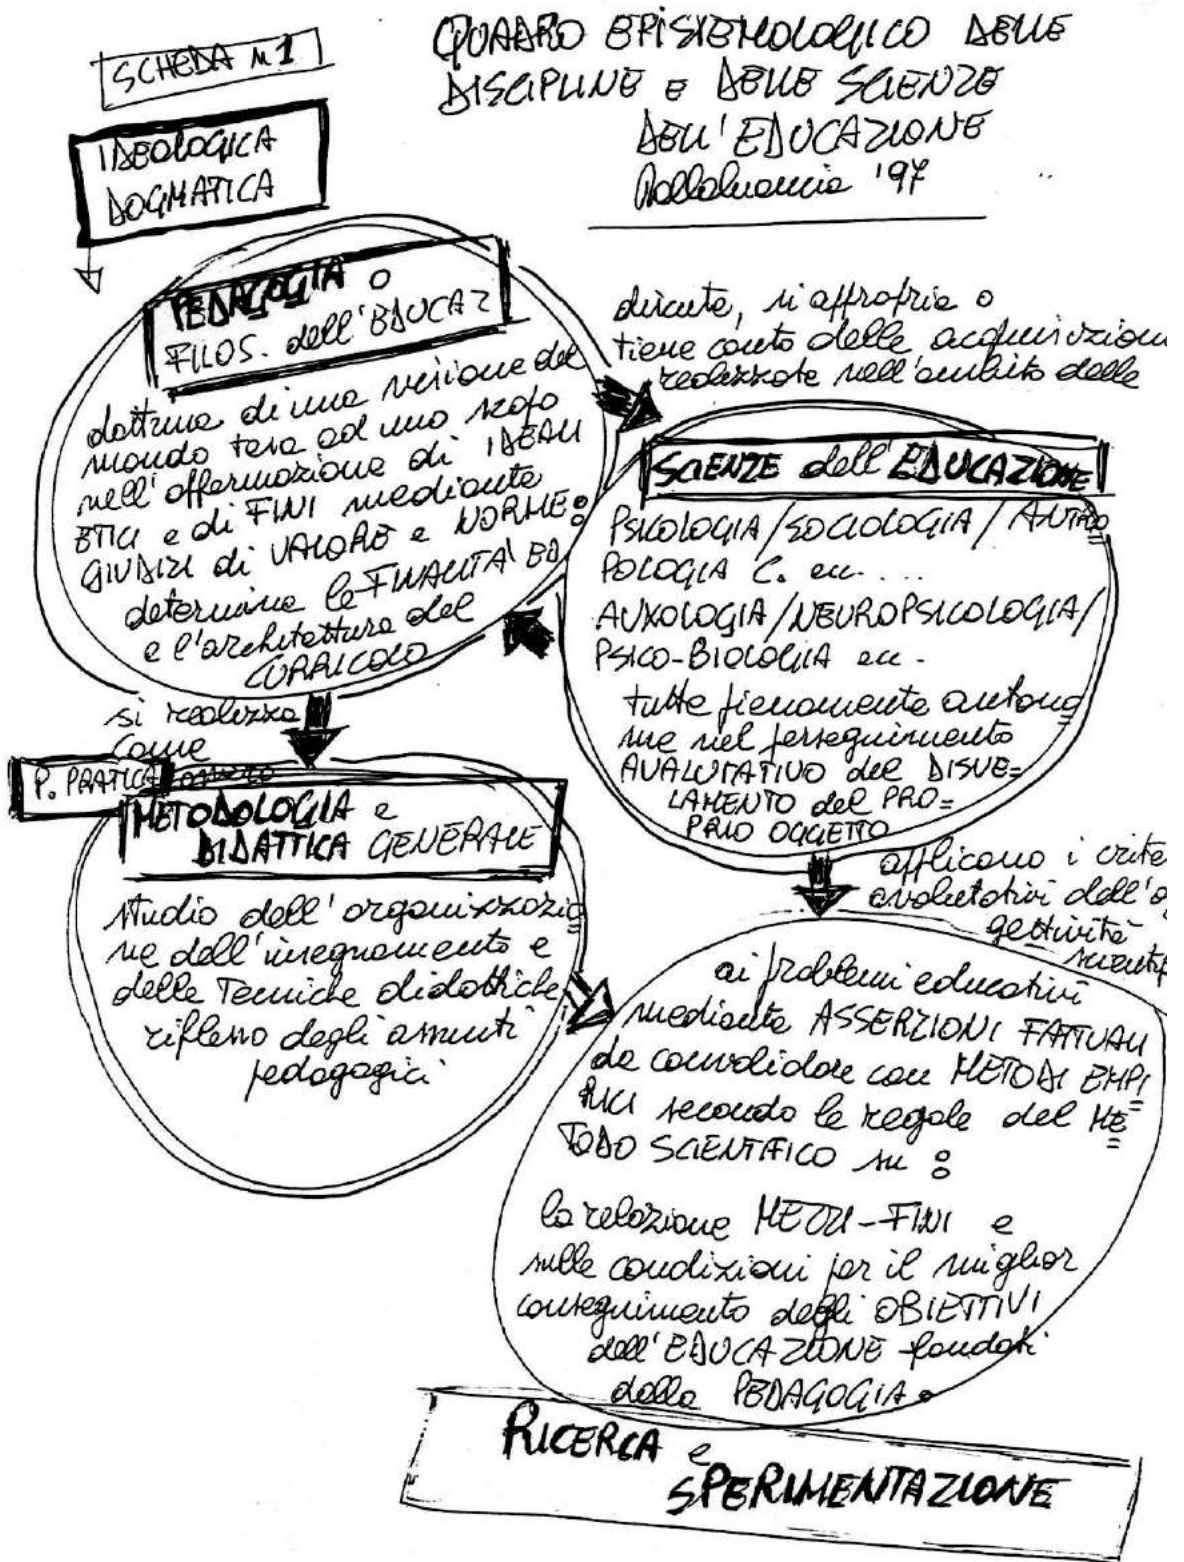 SCHEDA N 1
QUADRO EPISTEMOLOGICO DELLE
DISCIPLINE e DELLE SCIENZE
DELL'EDUCAZIONE
'97
IDEOLOGICA
DOGMATICA
PEDAGOGIA o
FILOS. dell'EDUCAZ
dottrina di una visione del
mondo tesa ad uno scopo
nell'affermazione di IDEALI
ETICI e di FINI mediante
GIUDIZI di VALORE e NORME:
determina le FINALITA' ED
e l'architettura del
CURRICOLO
discute, si appropria o
tiene conto delle acquisizion
realizzate nell'ambito delle
SCIENZE dell'EDUCAZIONE
PSICOLOGIA/SOCIOLOGIA/ANTRO
POLOGIA C. ecc....
AUXOLOGIA/NEUROPSICOLOGIA/
PSICO-BIOLOGIA ecc.
tutte pienamente autono
me nel perseguimento
AVALUTATIVO del DISVE=
LAMENTO del PRO=
PRIO OGGETTO
si realizza
come
P. PRATICA ovvero
METODOLOGIA e
DIDATTICA GENERALE
studio dell'organizzazio
ne dell'insegnamento e
delle Tecniche didattiche
riflesso degli assunti
pedagogici
applicano i crite
avalutativi dell'og
gettività
scientif
ai problemi educativi
mediante ASSERZIONI FATTUALI
da convalidare con METODI EMPI
RICI secondo le regole del ME
TODO SCIENTIFICO su :
la relazione MEZZI-FINI e
sulle condizioni per il miglior
conseguimento degli OBIETTIVI
dell'EDUCAZIONE fondati
dalla PEDAGOGIA.
RICERCA e
SPERIMENTAZIONE